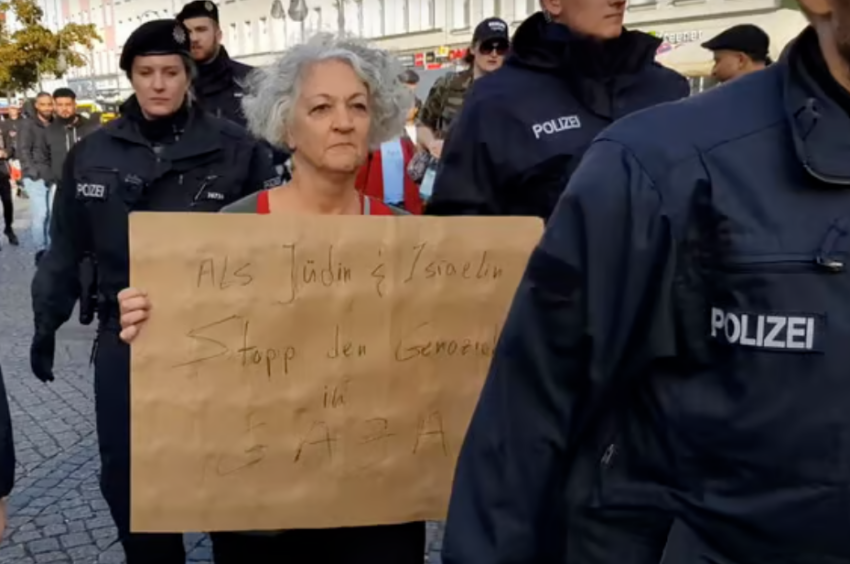 POLIZEI
POLIZEI
POLIZEI
Als Jüdin & Israelin
Stopp den Genozid
in
GAZA